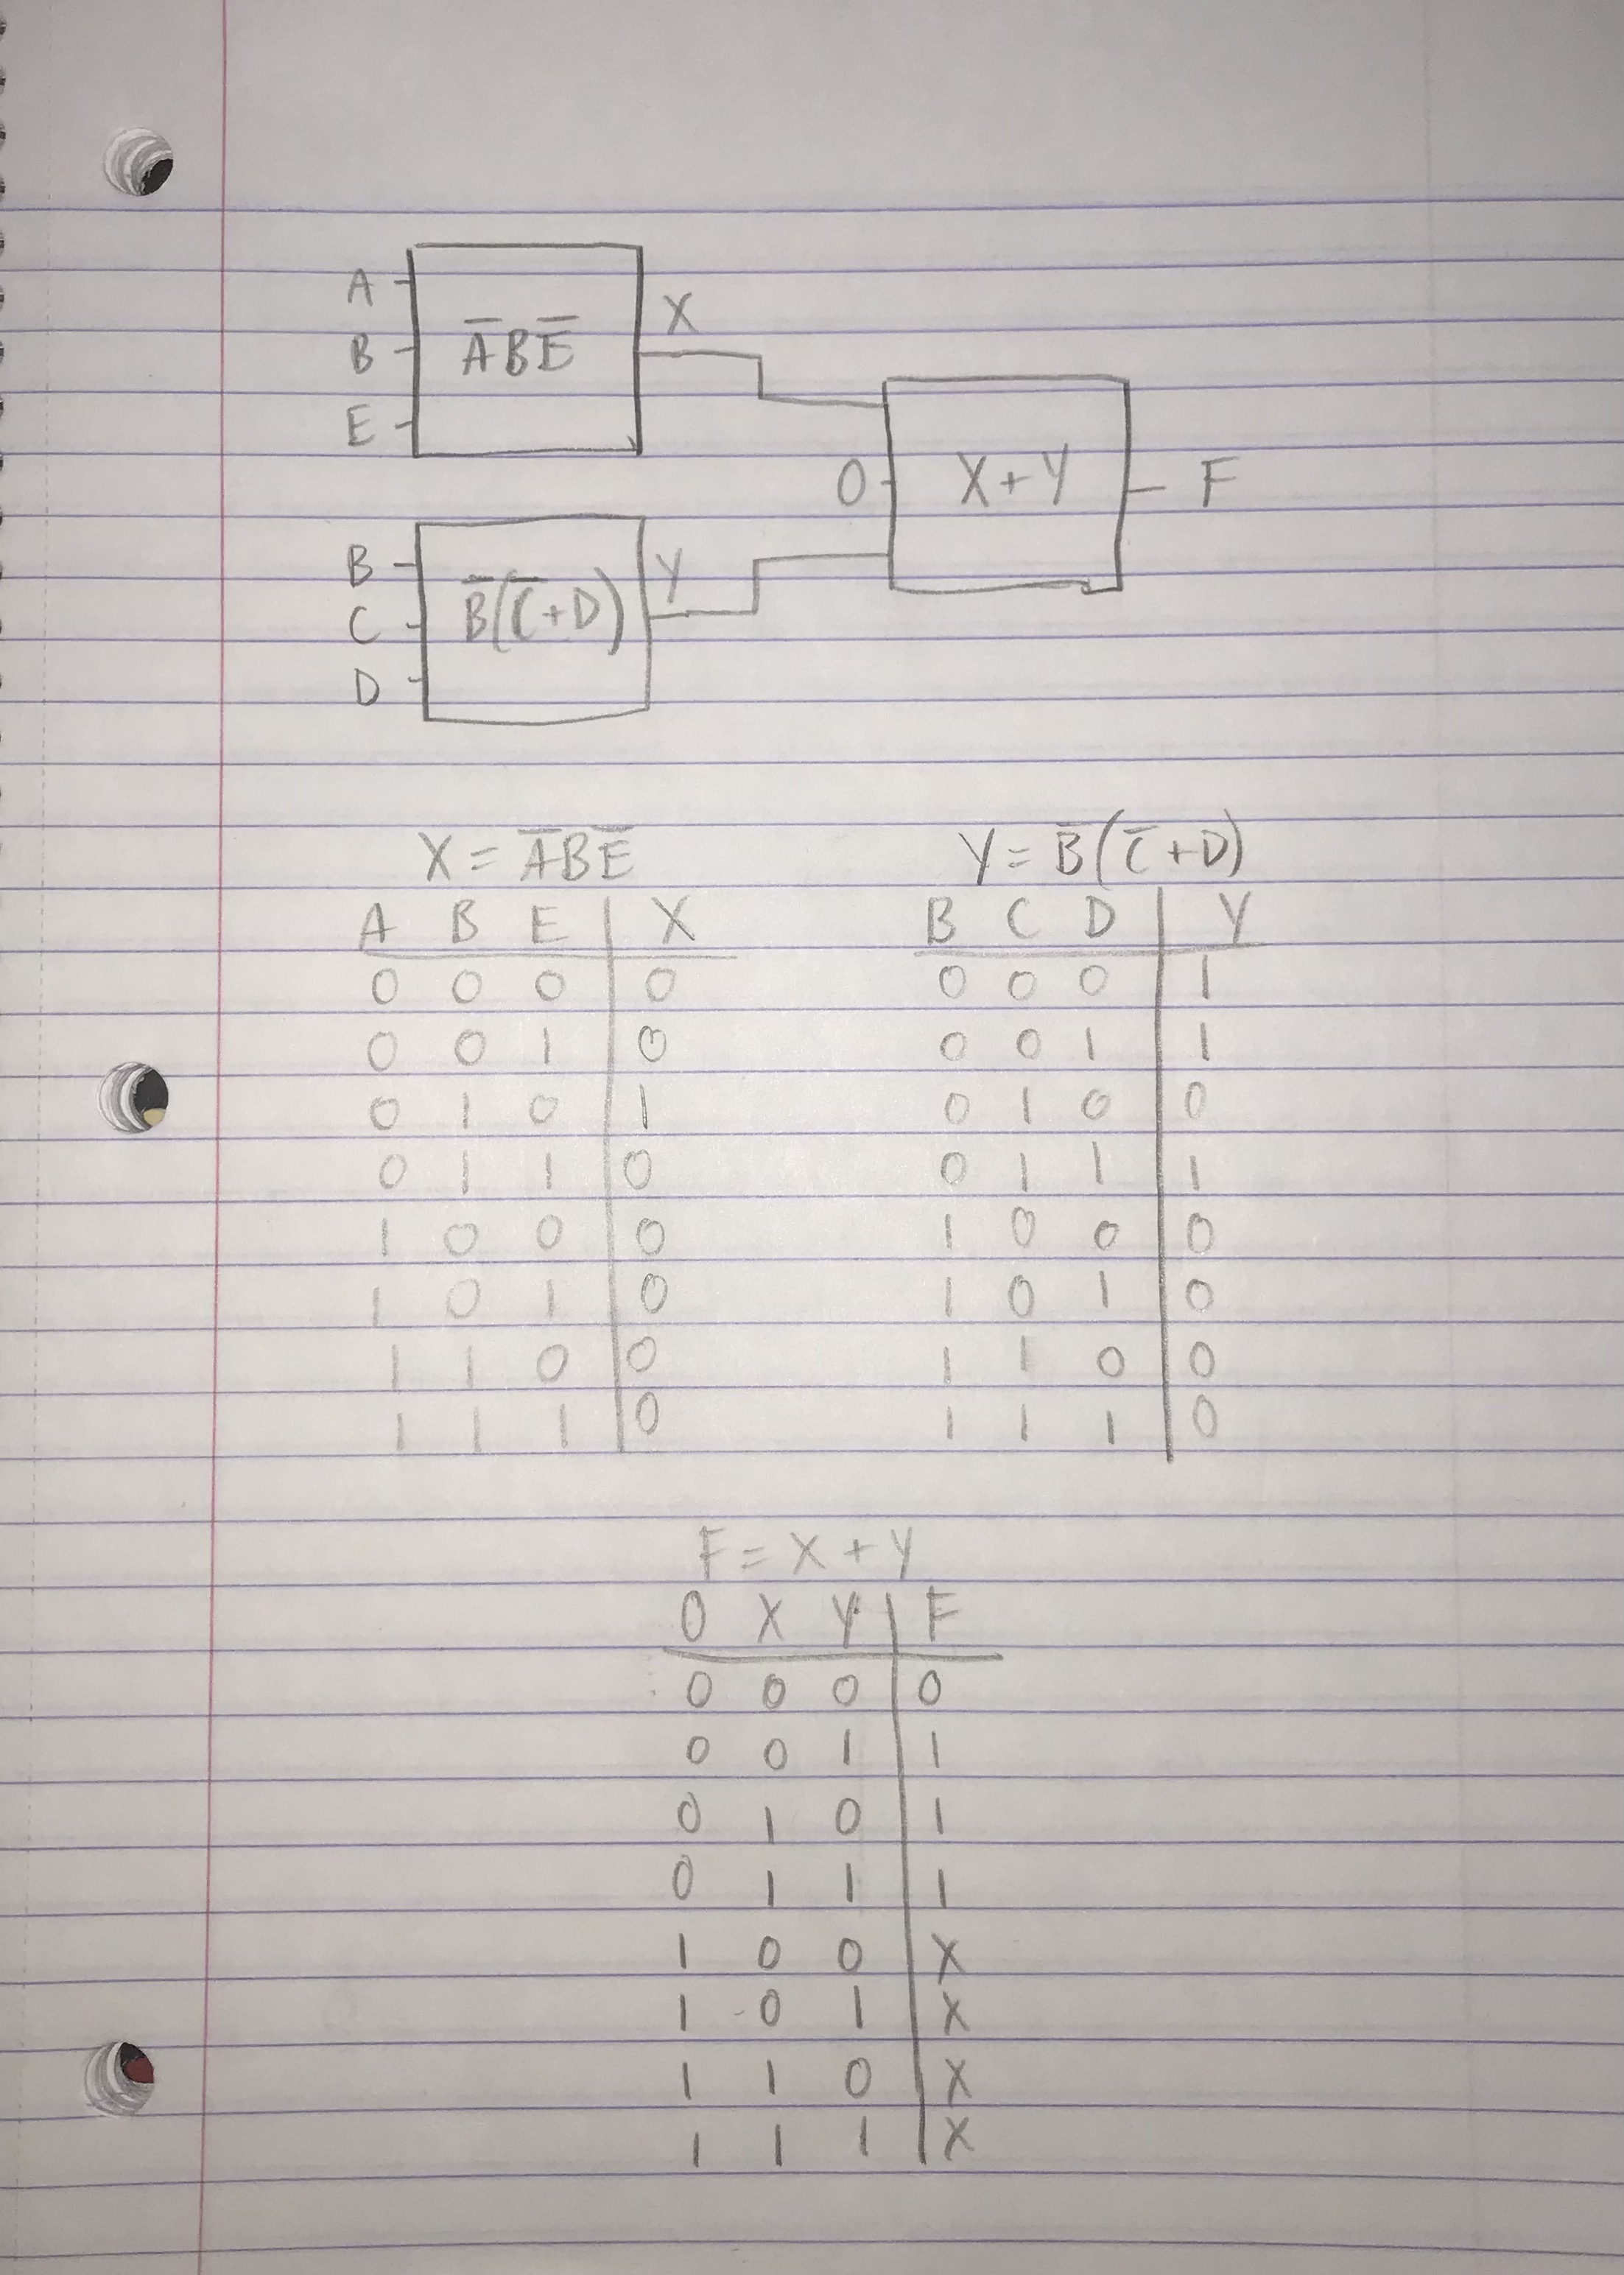 A
B
E
A̅BE̅
X
O
X+Y
F
B
C
D
B̅(C̅+D)
Y
X = A̅BE̅
A B E X
0 0 0 0
0 0 1 0
0 1 0 1
0 1 1 0
1 0 0 0
1 0 1 0
1 1 0 0
1 1 1 0
Y = B̅(C̅+D)
B C D Y
0 0 0 1
0 0 1 1
0 1 0 0
0 1 1 1
1 0 0 0
1 0 1 0
1 1 0 0
1 1 1 0
F = X + Y
0 X Y F
0 0 0 0
0 0 1 1
0 1 0 1
0 1 1 1
1 0 0 X
1 0 1 X
1 1 0 X
1 1 1 X